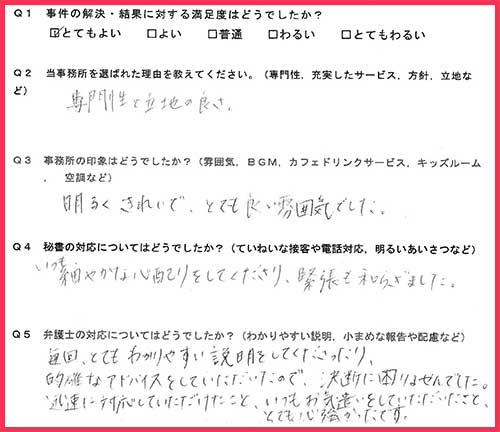 Q1 事件の解決・結果に対する満足度はどうでしたか?
☑とてもよい □よい □普通 □わるい □とてもわるい
Q2 当事務所を選ばれた理由を教えてください。(専門性, 充実したサービス, 方針, 立地な
ど)
専門性と立地の良さ。
Q3 事務所の印象はどうでしたか?(雰囲気, BGM, カフェドリンクサービス, キッズルーム
, 空調など)
明るく きれいで、とても良い雰囲気でした。
Q4 秘書の対応についてはどうでしたか?(ていねいな接客や電話対応, 明るいあいさつなど)
いつも細やかな心配りをしてくださり、緊張も和らぎました。
Q5 弁護士の対応についてはどうでしたか?(わかりやすい説明, 小まめな報告や配慮など)
毎回、とても わかりやすい説明をしてくださったり、
的確なアドバイスをしていただいたので、決断に困りませんでした。
迅速に対応していただけたこと、いつもお気遣いをしていただいたこと、
とても心強かったです。